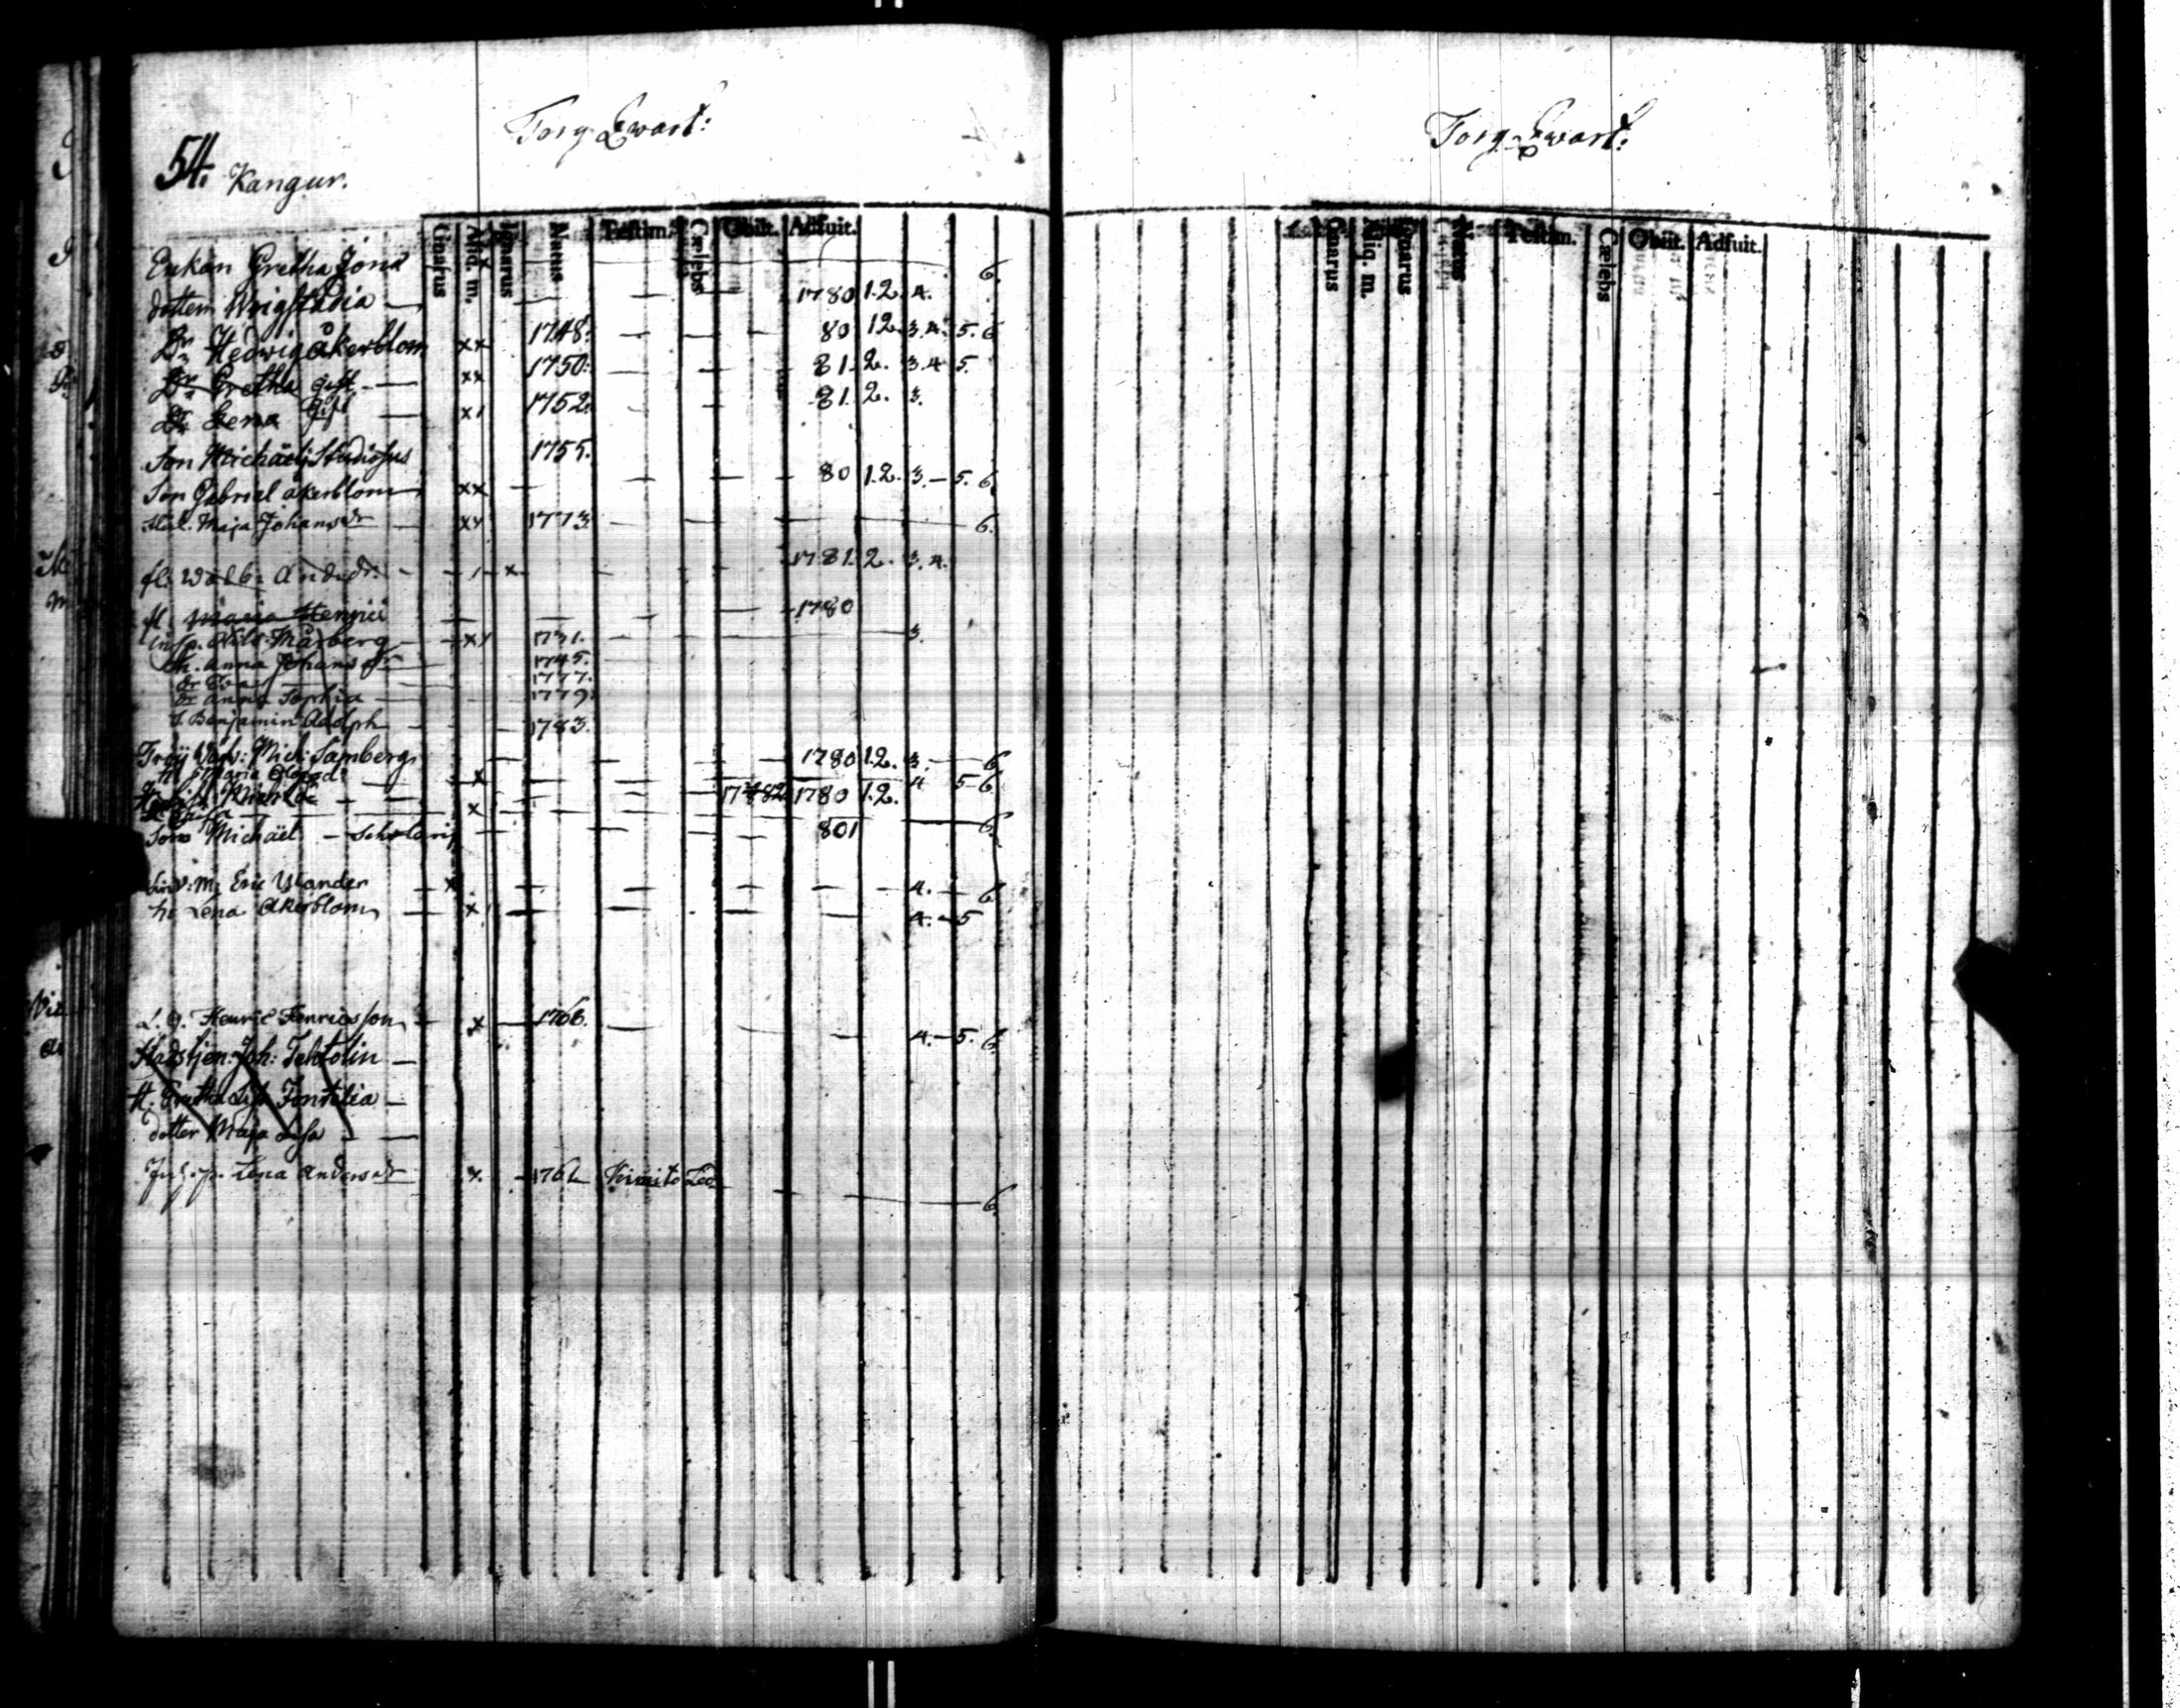 Torg Qwart:
54. Kangur.
Gnarus Aliq. m. Ignarus Natus Testim. Cælebs Obiit. Adfuit.
Enkan Gretha Jons 6.
dotter Wrigstadia — 1780 1.2. 4.
Dr Hedwig Åkerblom xx 1748. 80 12. 3.4. 5. 6
Dr Gretha gift xx 1750. 81. 2. 3.4 5.
Dr Lena gift x1 1752. 81. 2. 3.
Son Michaël Studiosus 1755.
Son Gabriel Åkerblom xx 80 1.2. 3. — 5. 6
Maja Johansdr xx 1773 6.
fl. Walb: Andsdr. x 1781. 2. 3.4.
fl. Maria Henrici 1780
Insp. Nils Mårberg xx 1731. 3.
h. Anna Johansdr 1745.
dr Eva 1777.
dr Anna Sophia 1779.
S. Benjamin Adolph 1783.
Mich: Samberg 1780 1.2. 3. 6
h. Maria x 4 5-6
Mich: 1782 1780 1.2.
x
Son Michaël — Scholaris 801 6.
Eric Ulander x 4. — 6
h. Lena Åkerblom x 4. - 5
L. G. Henric Henricsson x 1766. 4. - 5. 6
Stadstjen: Joh: Tehtolin
H. Gretha Lisa Fontelia
dotter Maja Lisa
Lena Andersdr x. 1762 Kimito 6.
Torg Qwart:
Gnarus Aliq. m. Ignarus Natus Testim. Cælebs Obiit. Adfuit.